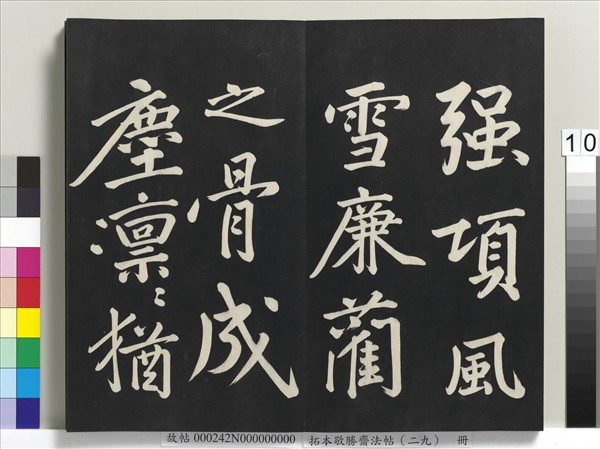 强項風
雪廉藺
之骨成
塵凛〻猶
10
故帖000242N000000000 拓本敬勝齋法帖(二九) 冊